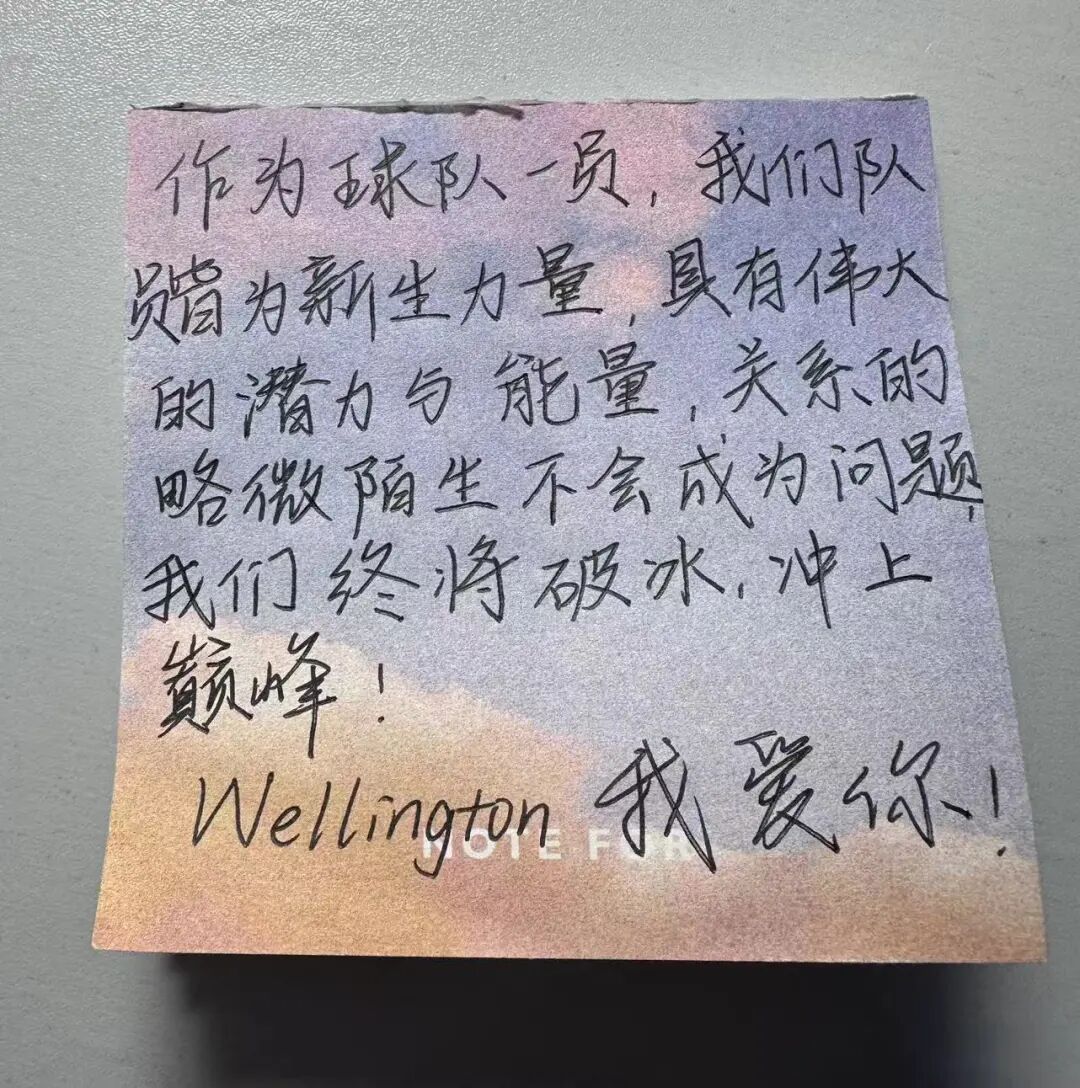 作为球队一员，我们队
员皆为新生力量，具有伟大
的潜力与能量，关系的
略微陌生不会成为问题，
我们终将破冰，冲上
巅峰！
Wellington 我爱你！
NOTE FOR